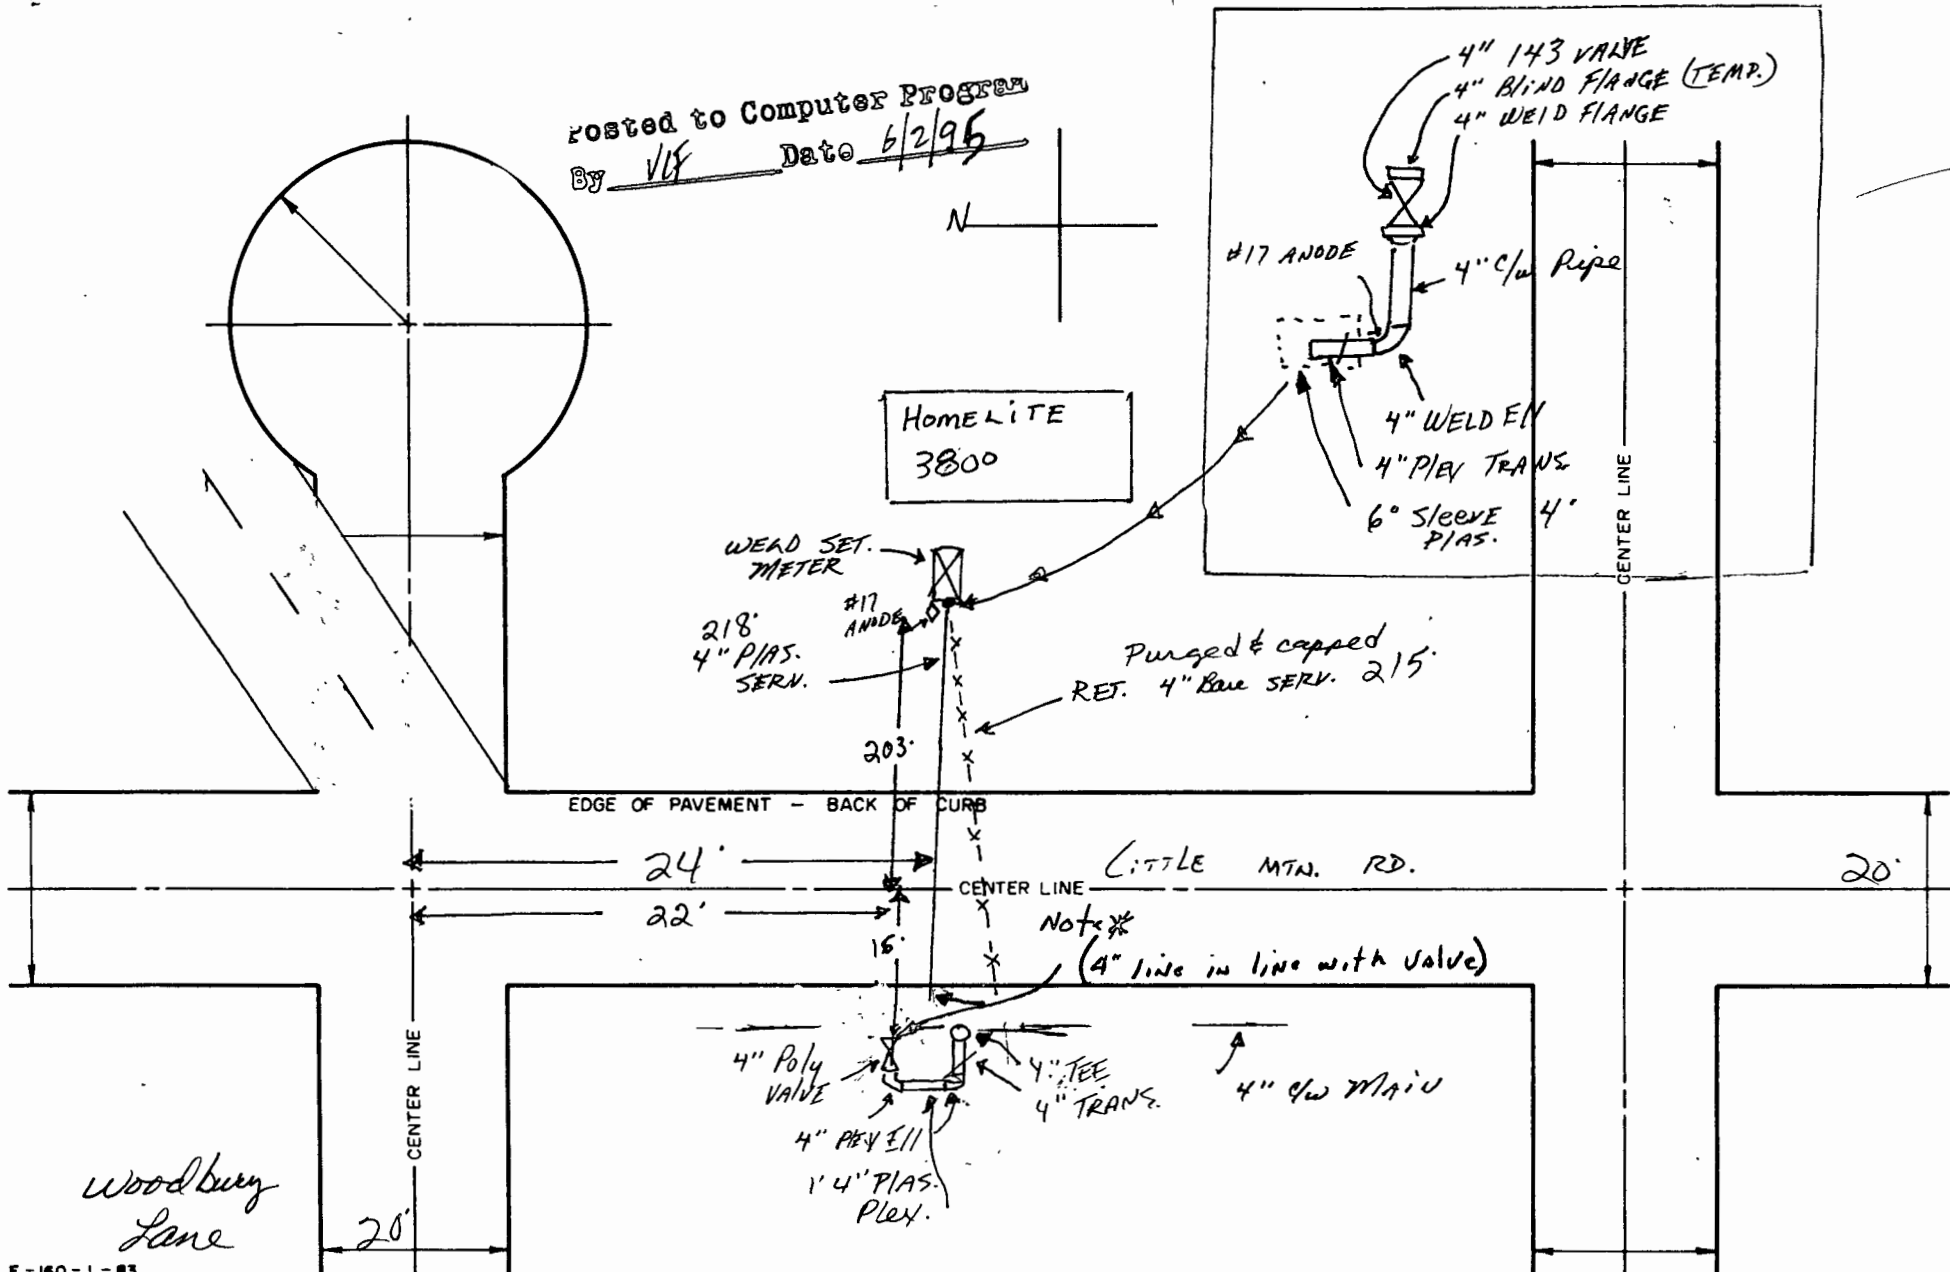 Posted to Computer Program
By VLF Date 6/2/95
N
4" 143 VALVE
4" BLIND FLANGE (TEMP.)
4" WELD FLANGE
#17 ANODE
4" C/W Pipe
4" WELD Ell
4" Plex TRANS.
6" Sleeve 4'
PLAS.
CENTER LINE
HOMELITE
3800
WELD SET.
METER
#17
ANODE
218'
4" PLAS.
SERV.
Purged & capped
RET. 4" Bare SERV. 215'
203'
EDGE OF PAVEMENT - BACK OF CURB
24'
LITTLE MTN. RD.
20'
CENTER LINE
22'
Note*
15'
(4" line in line with valve)
4" Poly
VALVE
4" TEE
4" TRANS.
4" C/W MAIN
4" Plex Ell
1' 4" PLAS.
Plex.
CENTER LINE
Woodbury
Lane
20'